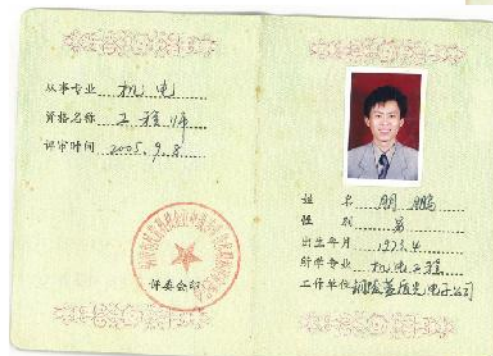 从事专业 机电
资格名称 工程师
评审时间 2005.9.8
评委会印
姓 名 朋鹏
性 别 男
出生年月 1973.4
所学专业 机电工程
工作单位 铜陵 光电子公司